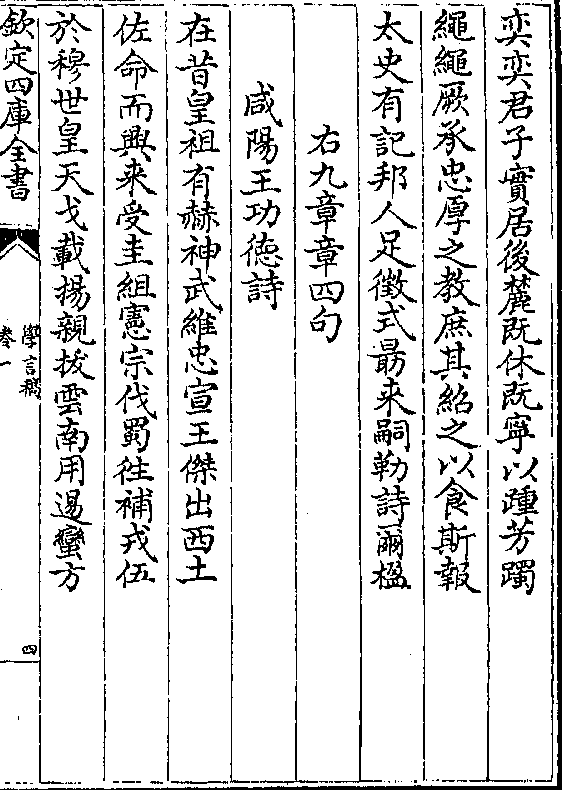 奕奕君子實居後麓既休既寧以踵芳躅
繩繩厥承忠厚之教庶其紹之以食斯報
太史有記邦人足徵式朂来嗣勒詩爾楹
右九章章四句
咸陽王功徳詩
在昔皇祖有赫神武維忠宣王傑出西土
佐命而興来受圭組憲宗伐蜀徃補戎伍
於穆世皇天戈載揚親拔雲南用遏蠻方
欽定四庫全書
學言稿
卷一
四